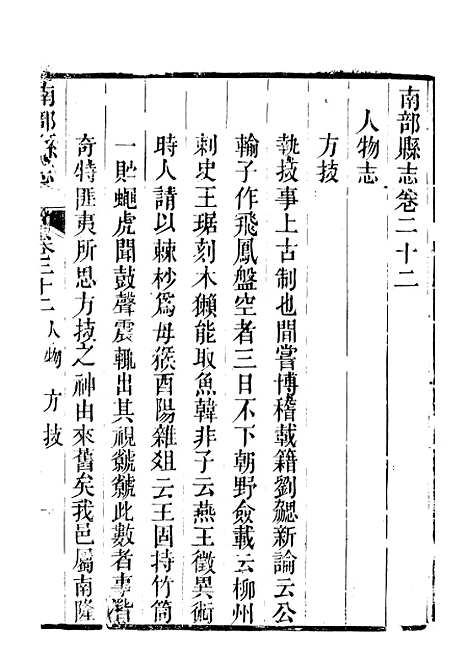 南部縣志卷二十二
人物志
方技
執技事上古制也間嘗博稽載籍劉勰新論云公
輸子作飛鳳盤空者三日不下朝野僉載云柳州
刺史王琚刻木獺能取魚韓非子云燕王徵異術
時人請以棘杪爲母猴酉陽雜俎云王固持竹筒
一貯蠅虎聞鼓聲震輒出其視虩虩此數者事皆
奇特匪夷所思方技之神由來舊矣我邑屬南隆
南部縣志 卷二十二 人物 方技